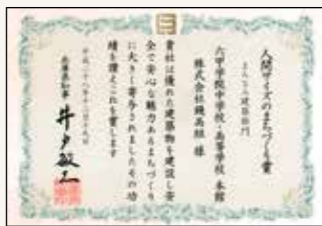 人間サイズのまちづくり賞
まちなみ建築部門
六甲学院中学校・高等学校 本館
株式会社錢高組 様
貴社は優れた建築物を建設し安
全で安心な魅力あるまちづくり
に大きく寄与されましたその功
績を讃えこれを賞します
平成二十八年十二月十九日
兵庫県知事 井戸敏三